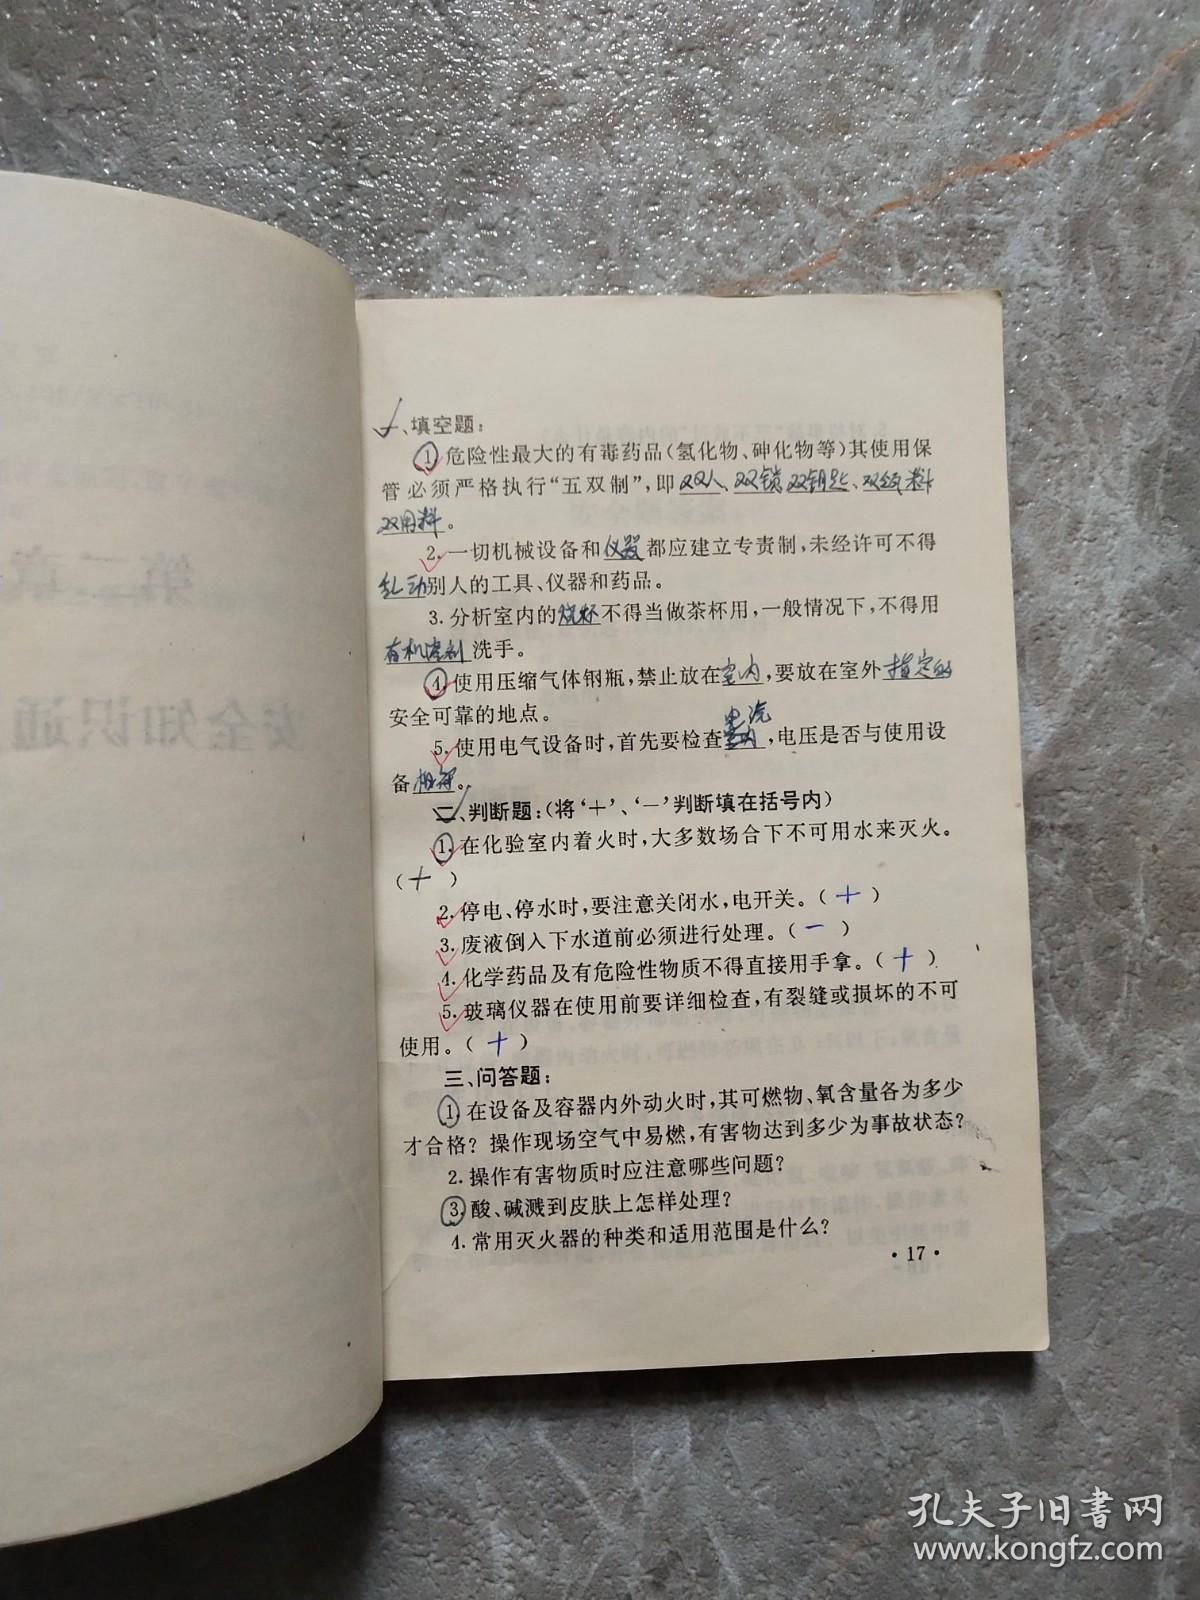 一、填空题：
1.危险性最大的有毒药品（氢化物、砷化物等）其使用保
管必须严格执行“五双制”，即双人、双锁 双钥匙、双领料
双用料。
2.一切机械设备和仪器都应建立专责制，未经许可不得
乱动别人的工具、仪器和药品。
3.分析室内的烧杯不得当做茶杯用，一般情况下，不得用
有机溶剂洗手。
4.使用压缩气体钢瓶，禁止放在室内，要放在室外指定的
安全可靠的地点。
5.使用电气设备时，首先要检查电流，电压是否与使用设
备相符。
二、判断题：（将‘＋’、‘－’判断填在括号内）
1.在化验室内着火时，大多数场合下不可用水来灭火。
（＋）
2.停电、停水时，要注意关闭水，电开关。（＋）
3.废液倒入下水道前必须进行处理。（－）
4.化学药品及有危险性物质不得直接用手拿。（＋）
5.玻璃仪器在使用前要详细检查，有裂缝或损坏的不可
使用。（＋）
三、问答题：
1.在设备及容器内外动火时，其可燃物、氧含量各为多少
才合格？操作现场空气中易燃，有害物达到多少为事故状态？
2.操作有害物质时应注意哪些问题？
3.酸、碱溅到皮肤上怎样处理？
4.常用灭火器的种类和适用范围是什么？
·17·
第二章
安全知识通
孔夫子旧书网
www.kongfz.com